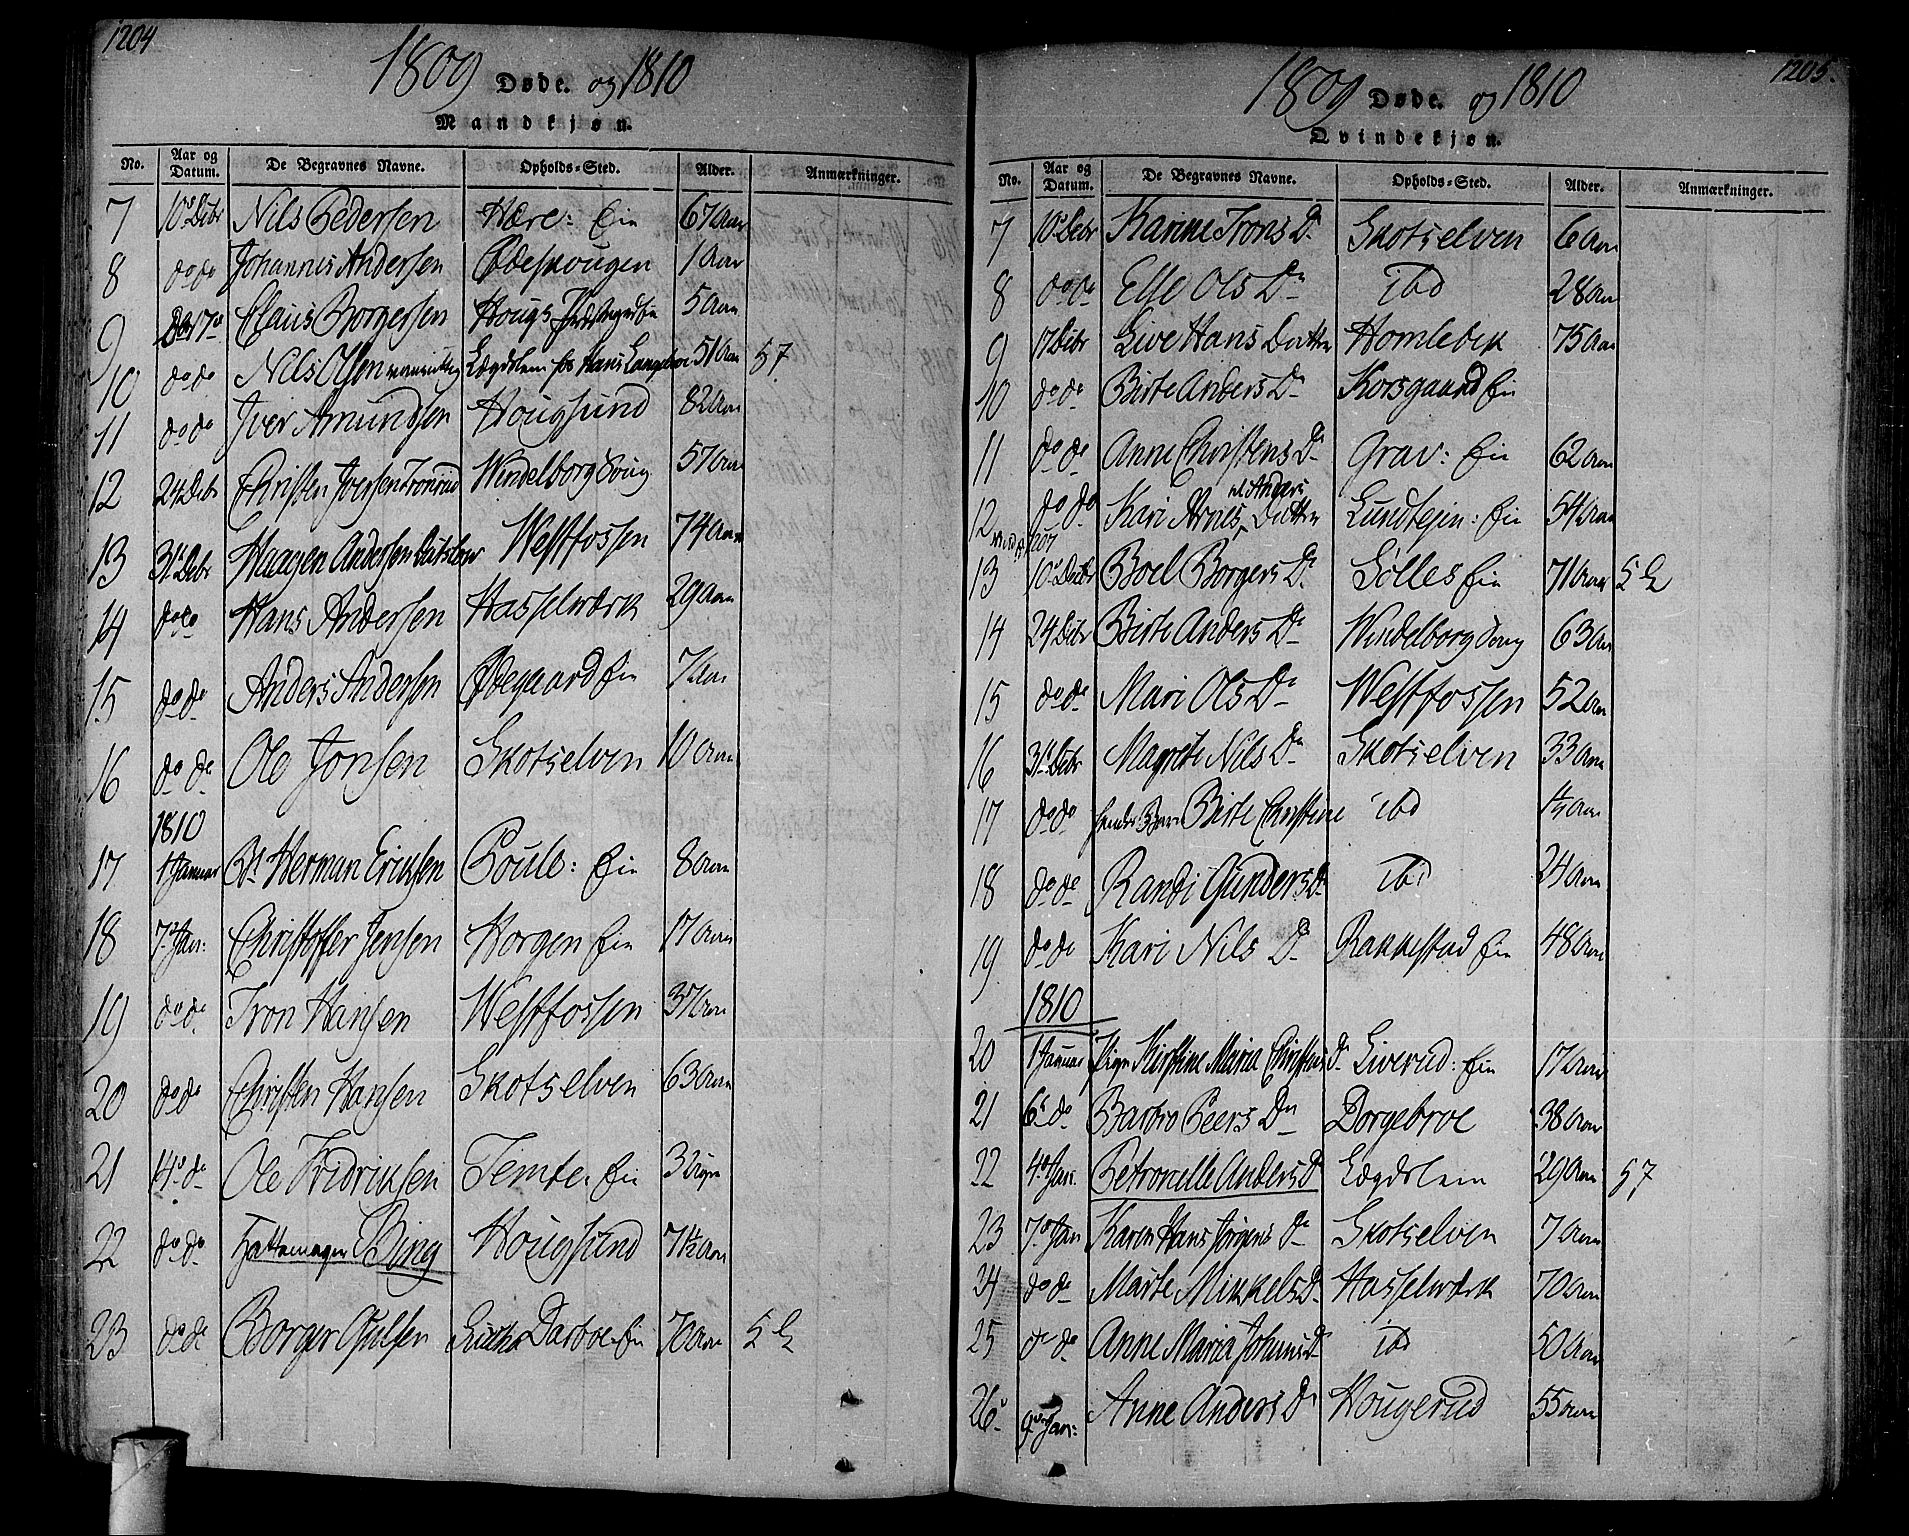 1204
1809 Døde. og 1810
Mandkjøn.
No. Aar og Datum. De Begravnes Navne. Opholds-Sted. Alder. Anmærkninger.
7 10de Debr Nils Pedersen Hære: Ein 67 Aar
8 do do Johannes Andersen Ødeskougen 1 Aar
9 17de Claus Borgersen Hougs 5 Aar
10 do do Nils Olsen Lægdslem 51 Aar 57
11 do do Iver Amundsen Hougsund 82 Aar
12 24 Debr Christen Iversen Windelborg 57 Aar
13 31 Debr Haagen Andersen Westfossen 74 Aar
14 do do Hans Andersen Hasselwærk 29 Aar
15 do do Anders Andersen Ødegaard Ein 7 Aar
16 do do Ole Jonsen Skotselven 10 Aar
1810
17 1 Januar Herman Eriksen Poule: Ein 8 Aar
18 7de Jan: Christoffer Jensen Korgen Ein 17 Aar
19 do do Tron Hansen Westfossen 37 Aar
20 do do Christen Hansen Skotselven 63 Aar
21 14de do Ole Fridriksen Temte Ein 3 Uger
22 do do Hattemager Bing Hougsund 71½ Aar
23 do do Borger Darboe Ein 70 Aar
1205.
1809 Døde. og 1810
Qvindekjøn.
No. Aar og Datum. De Begravnes Navne. Opholds-Sted. Alder. Anmærkninger.
7 10de Debr Karine Trons Dr Skotselven 6 Aar
8 do do Else Ols Dr ibd 28 Aar
9 17 Debr Live Hans Datter Homlebek 75 Aar
10 do do Birte Anders Dr Korsgaard Ein
11 do do Anne Christens Dr Grav: Ein 62 Aar
12 do do Kari Arnes Datter Lundtejn: Ein 54 Aar
13 10de Debr Boel Borgers Dr Sølles Ein 71 Aar
14 24 Debr Birte Anders Dr Windelborg 63 Aar
15 do do Mari Ols Dr Westfossen 52 Aar
16 31 Debr Magrete Nils Dr Skotselven 33 Aar
17 do do Birte Christine ibd
18 do do Randi Gunders Dr ibd 24 Aar
19 do do Kari Nils Dr Rakkestad Ein 48 Aar
1810
20 1 Januar Pige Kirstine Maria Christens Dr Liverud: Ein 17 Aar
21 6te do Barbro Peers Dr Dorgebroe 38 Aar
22 4de Jan. Petronelle Anders Dr Lægdslem 29 Aar 57
23 7de Jan Karen Hans Jørgens Dr Skotselven 7 Aar
24 do do Marte Mikkels Dr Hasselwærk 70 Aar
25 do do Anne Maria Johans Dr ibd 50 Aar
26 9de Jan: Anne Anders Dr Hougerud 55 Aar